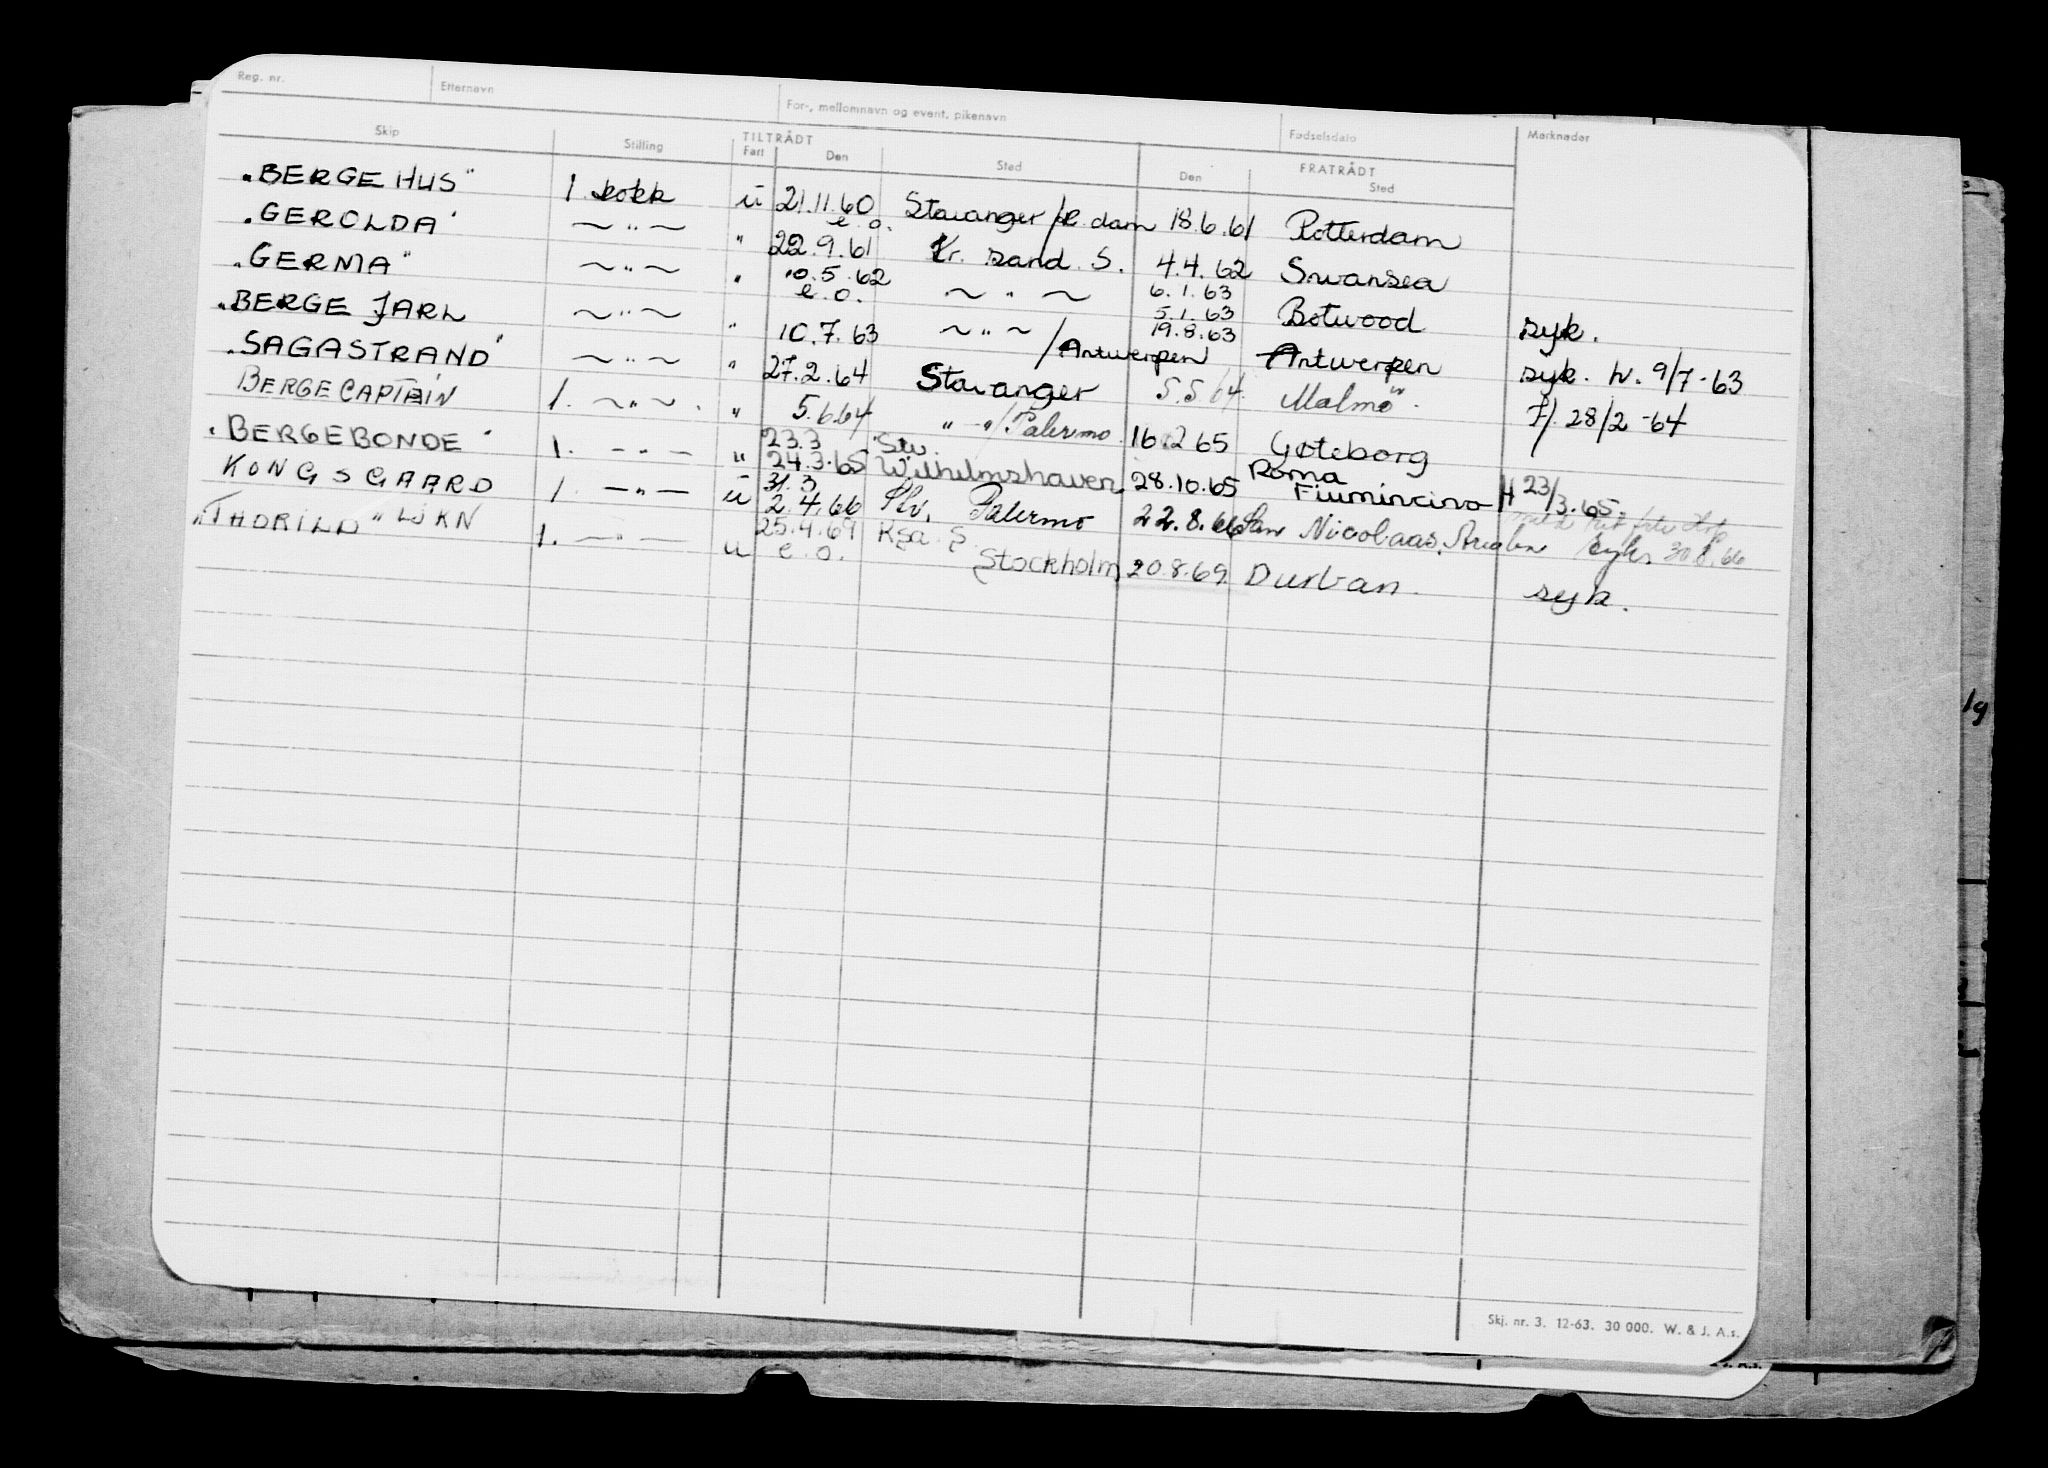 Reg. nr. Etternavn For-, mellomnavn og event. pikenavn Fødselsdato Merknader
Skip Stilling TILTRÅDT FRATRÅDT
Fart Den Sted Den Sted
"BERGEHUS" 1. kokk u 21.11.60 e.o. Stavanger/R.dam 18.6.61 Rotterdam
"GEROLDA" ~ " ~ " 22.9.61 Kr. sand. S. 4.4.62 Swansea
"GERMA" ~ " ~ " 10.5.62 e.o. ~ " ~ 6.1.63 5.1.63 Botwood syk.
"BERGE JARL ~ " ~ " 10.7.63 ~ " ~ /Antwerpen 19.8.63 Antwerpen syk. h. 9/7-63
"SAGASTRAND" ~ " ~ " 27.2.64 Stavanger 5.5.64. Malmö. F/. 28/2-64
BERGECAPTEIN 1. ~ " ~. " 5.6.64 " - " /Palermo 16.2.65 Gøteborg
"BERGEBONDE" 1. - " - " 23.3 24.3.65 Stv. Wilhelmshaven 28.10.65 Roma Fiumincino H 23/3.65.
KONGSGAARD 1. - " - u 31.3 2.4.66 Stv. Palermo 22.8.66 San Nicolaas, syk. 30.8.66
"THORILD" LJKN 1. - " - u 25.4.69 e.o. Ksa. S. Stockholm 20.8.69 Durban. syk.
19
Skj. nr. 3. 12-63. 30 000. W. & J. A.s.